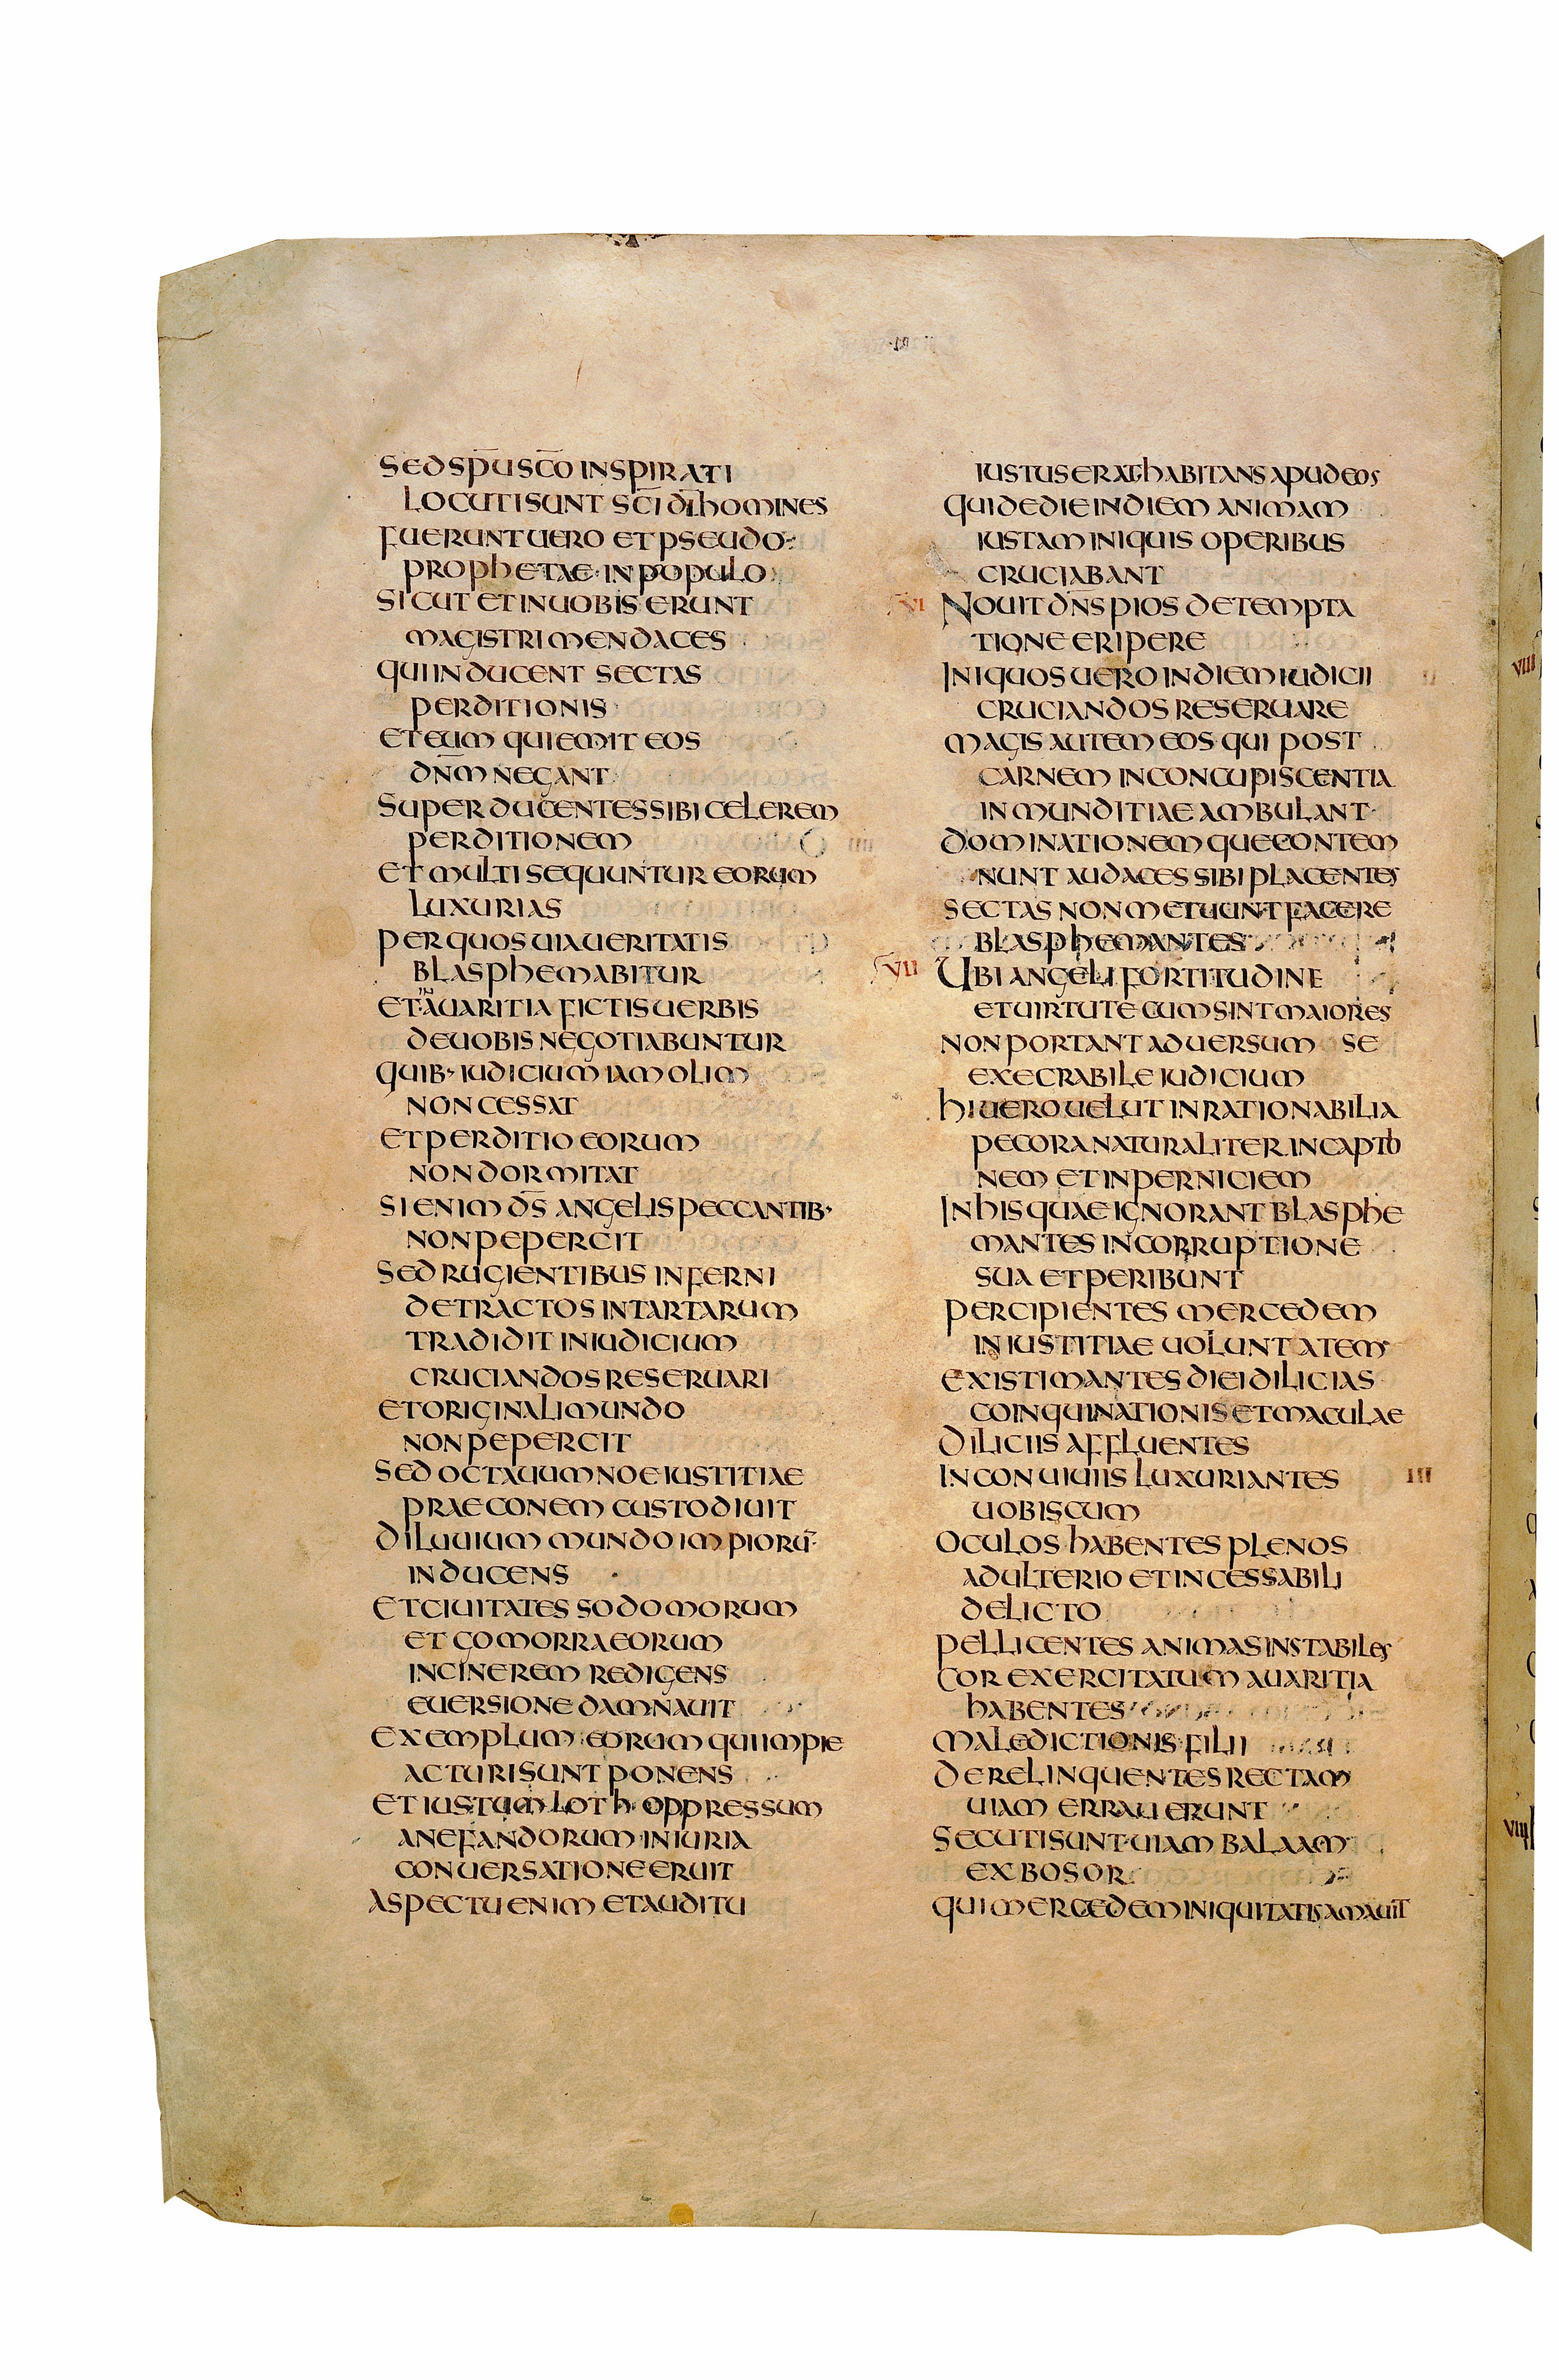 SED SP̅U SC̅O INSPIRATI
LOCUTI SUNT SC̅I DI̅ HOMINES
FUERUNT UERO ET PSEUDO
PROPHETAE IN POPULO
SICUT ET IN UOBIS ERUNT
MAGISTRI MENDACES
QUI INDUCENT SECTAS
PERDITIONIS
ET EUM QUI EMIT EOS
DN̅M NEGANT
SUPERDUCENTES SIBI CELEREM
PERDITIONEM
ET MULTI SEQUUNTUR EORUM
LUXURIAS
PER QUOS UIA UERITATIS
BLASPHEMABITUR
ET IN AUARITIA FICTIS UERBIS
DE UOBIS NEGOTIABUNTUR
QUIB· IUDICIUM IAM OLIM
NON CESSAT
ET PERDITIO EORUM
NON DORMITAT
SI ENIM DS̅ ANGELIS PECCANTIB·
NON PEPERCIT
SED RUGIENTIBUS INFERNI
DETRACTOS IN TARTARUM
TRADIDIT IN IUDICIUM
CRUCIANDOS RESERUARI
ET ORIGINALI MUNDO
NON PEPERCIT
SED OCTAUUM NOE IUSTITIAE
PRAECONEM CUSTODIUIT
DILUUIUM MUNDO IMPIORU̅
INDUCENS
ET CIUITATES SODOMORUM
ET GOMORRAEORUM
IN CINEREM REDIGENS
EUERSIONE DAMNAUIT
EXEMPLUM EORUM QUI IMPIE
ACTURI SUNT PONENS
ET IUSTUM LOTH OPPRESSUM
A NEFANDORUM INIURIA
CONUERSATIONE ERUIT
ASPECTU ENIM ET AUDITU
IUSTUS ERAT HABITANS APUD EOS
QUI DE DIE IN DIEM ANIMAM
IUSTAM INIQUIS OPERIBUS
CRUCIABANT
VI NOUIT DN̅S PIOS DE TEMPTA
TIONE ERIPERE
INIQUOS UERO IN DIEM IUDICII
CRUCIANDOS RESERUARE
MAGIS AUTEM EOS QUI POST
CARNEM IN CONCUPISCENTIA
INMUNDITIAE AMBULANT
DOMINATIONEMQUE CONTEM
NUNT AUDACES SIBI PLACENTES
SECTAS NON METUUNT FACERE
BLASPHEMANTES
VII UBI ANGELI FORTITUDINE
ET UIRTUTE CUM SINT MAIORES
NON PORTANT ADUERSUM SE
EXECRABILE IUDICIUM
HI UERO UELUT INRATIONABILIA
PECORA NATURALITER IN CAPTIO
NEM ET IN PERNICIEM
IN HIS QUAE IGNORANT BLASPHE
MANTES IN CORRUPTIONE
SUA ET PERIBUNT
PERCIPIENTES MERCEDEM
INIUSTITIAE UOLUNTATEM
EXISTIMANTES DIEI DILICIAS
COINQUINATIONIS ET MACULAE
DILICIIS AFFLUENTES
IN CONUIUIIS LUXURIANTES III
UOBISCUM
OCULOS HABENTES PLENOS
ADULTERIO ET INCESSABILI
DELICTO
PELLICENTES ANIMAS INSTABILES
COR EXERCITATUM AUARITIA
HABENTES
MALEDICTIONIS FILII
DERELINQUENTES RECTAM
UIAM ERRAUERUNT
SECUTI SUNT UIAM BALAAM
EX BOSOR
QUI MERCEDEM INIQUITATIS AMAUIT
VIII
VIIII